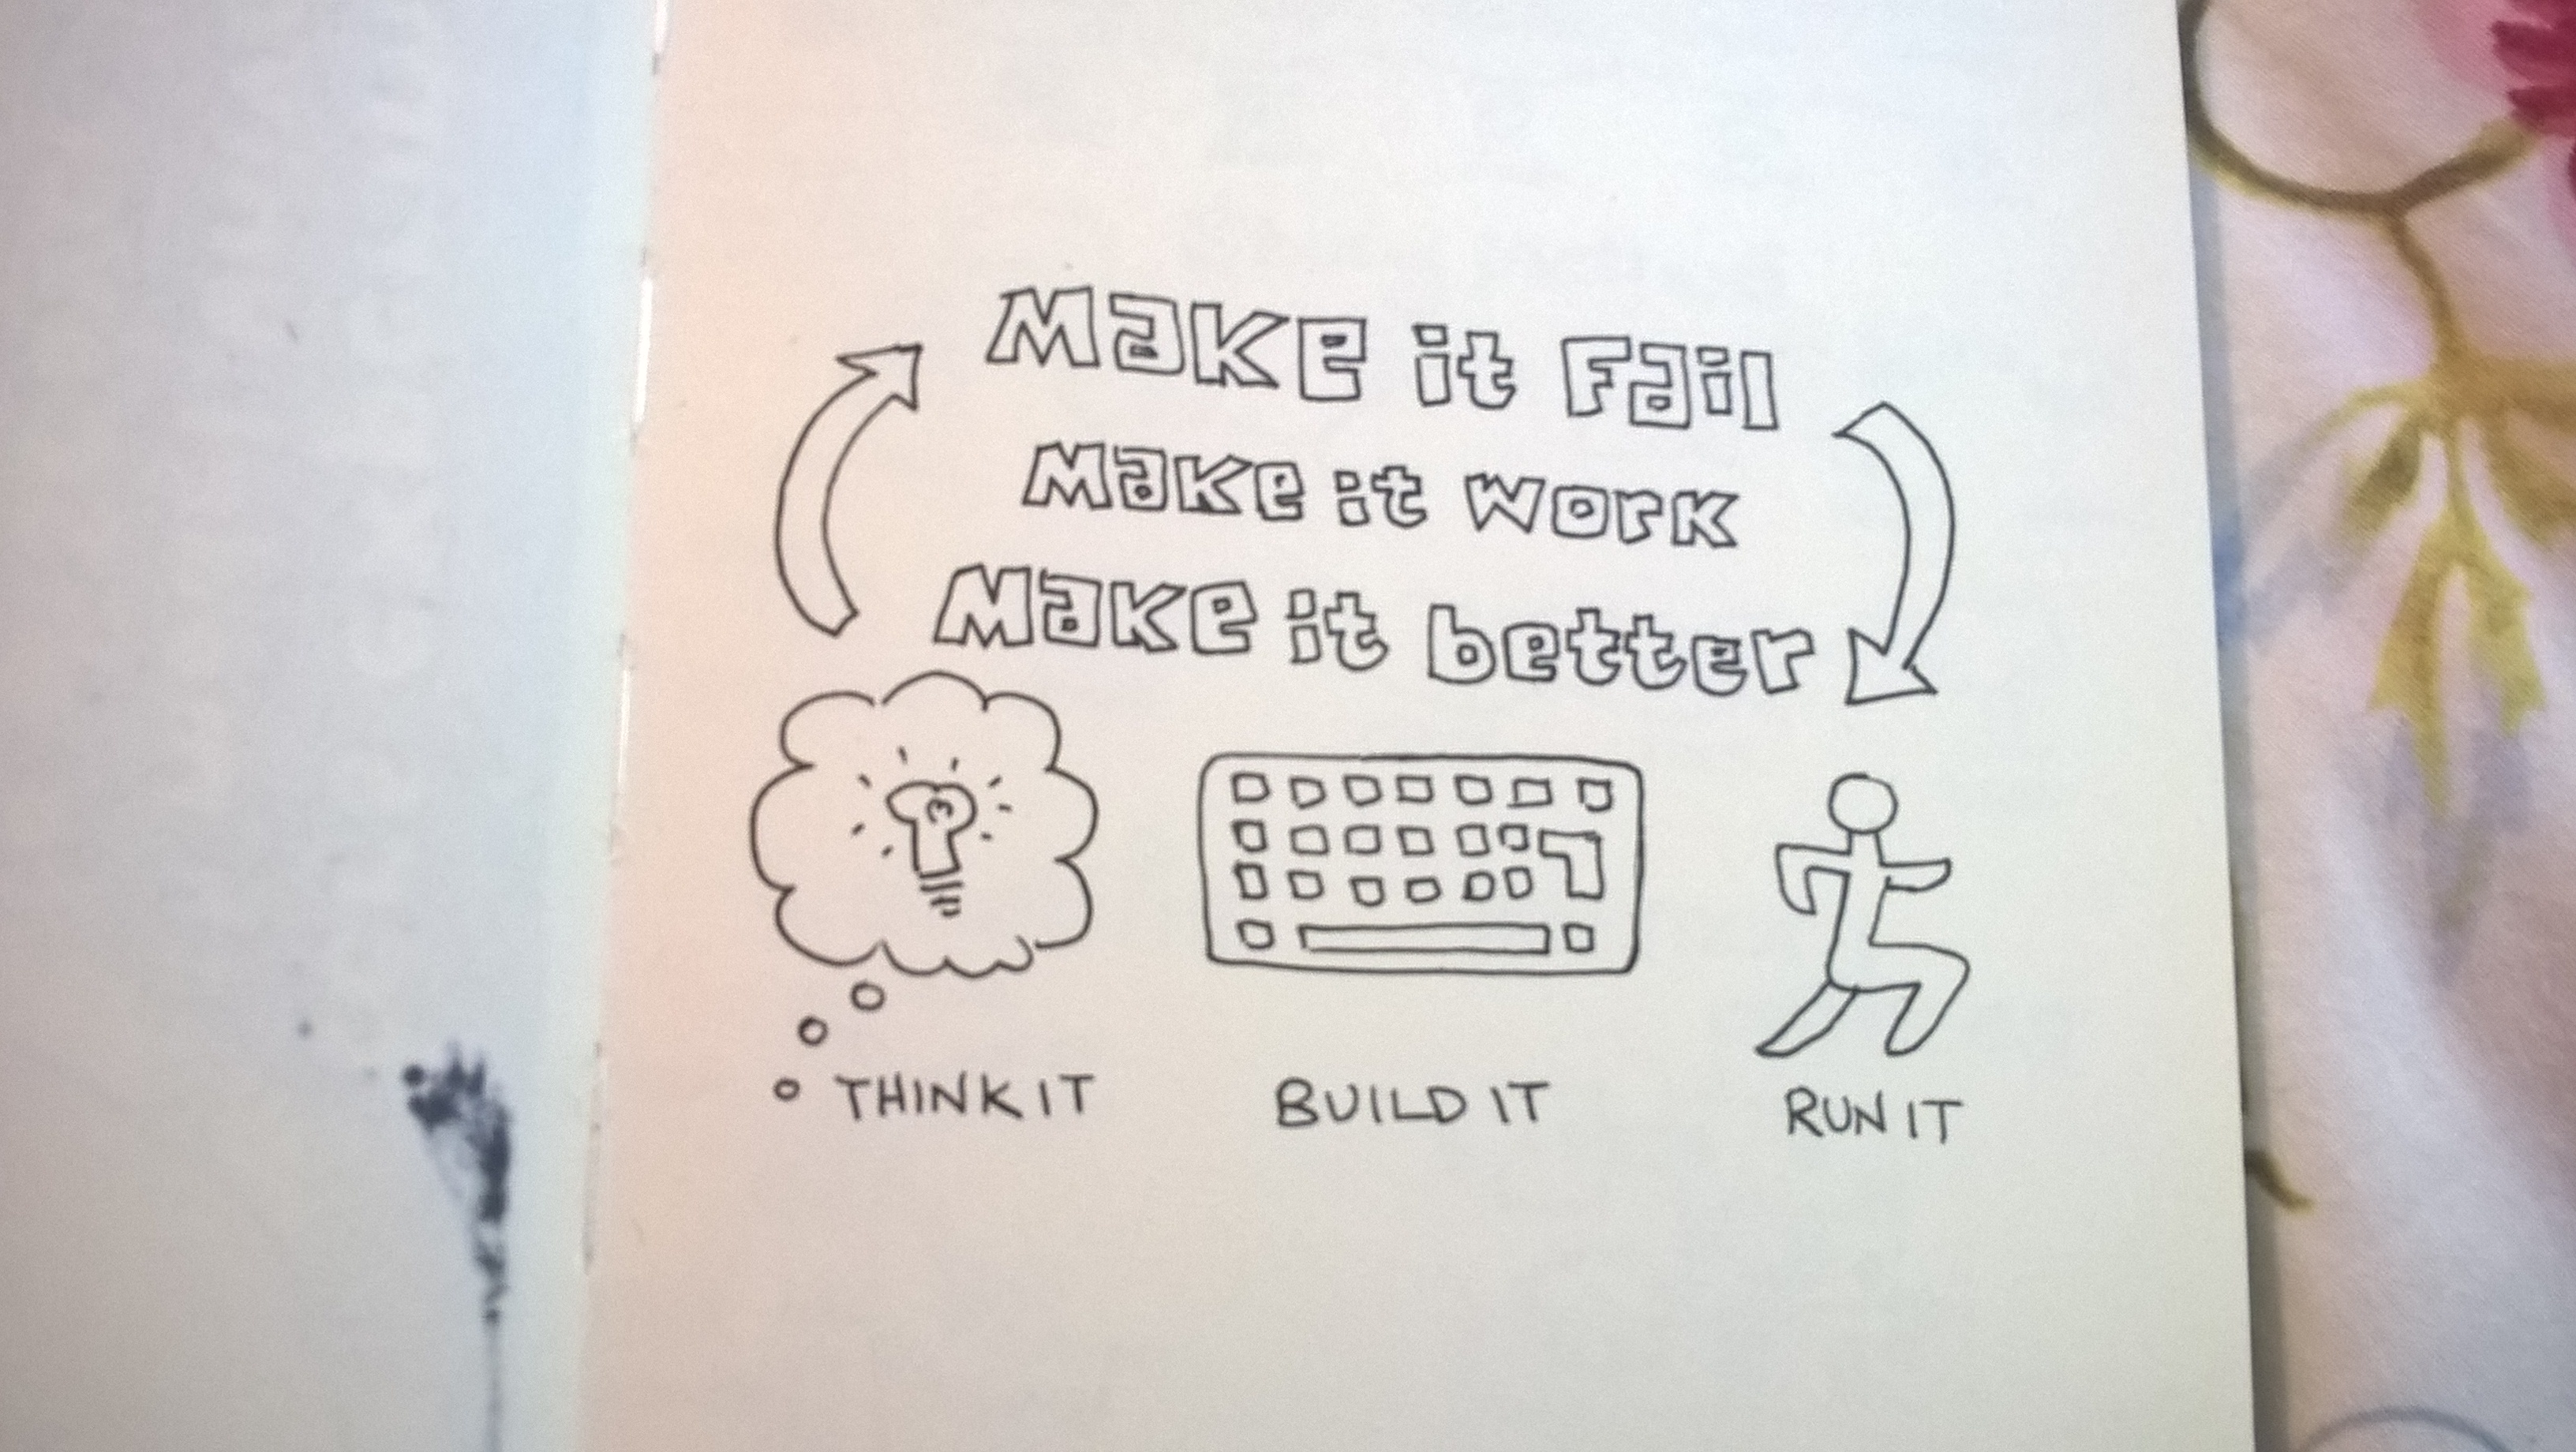 Make it Fail
Make it work
Make it better
THINK IT
BUILD IT
RUN IT